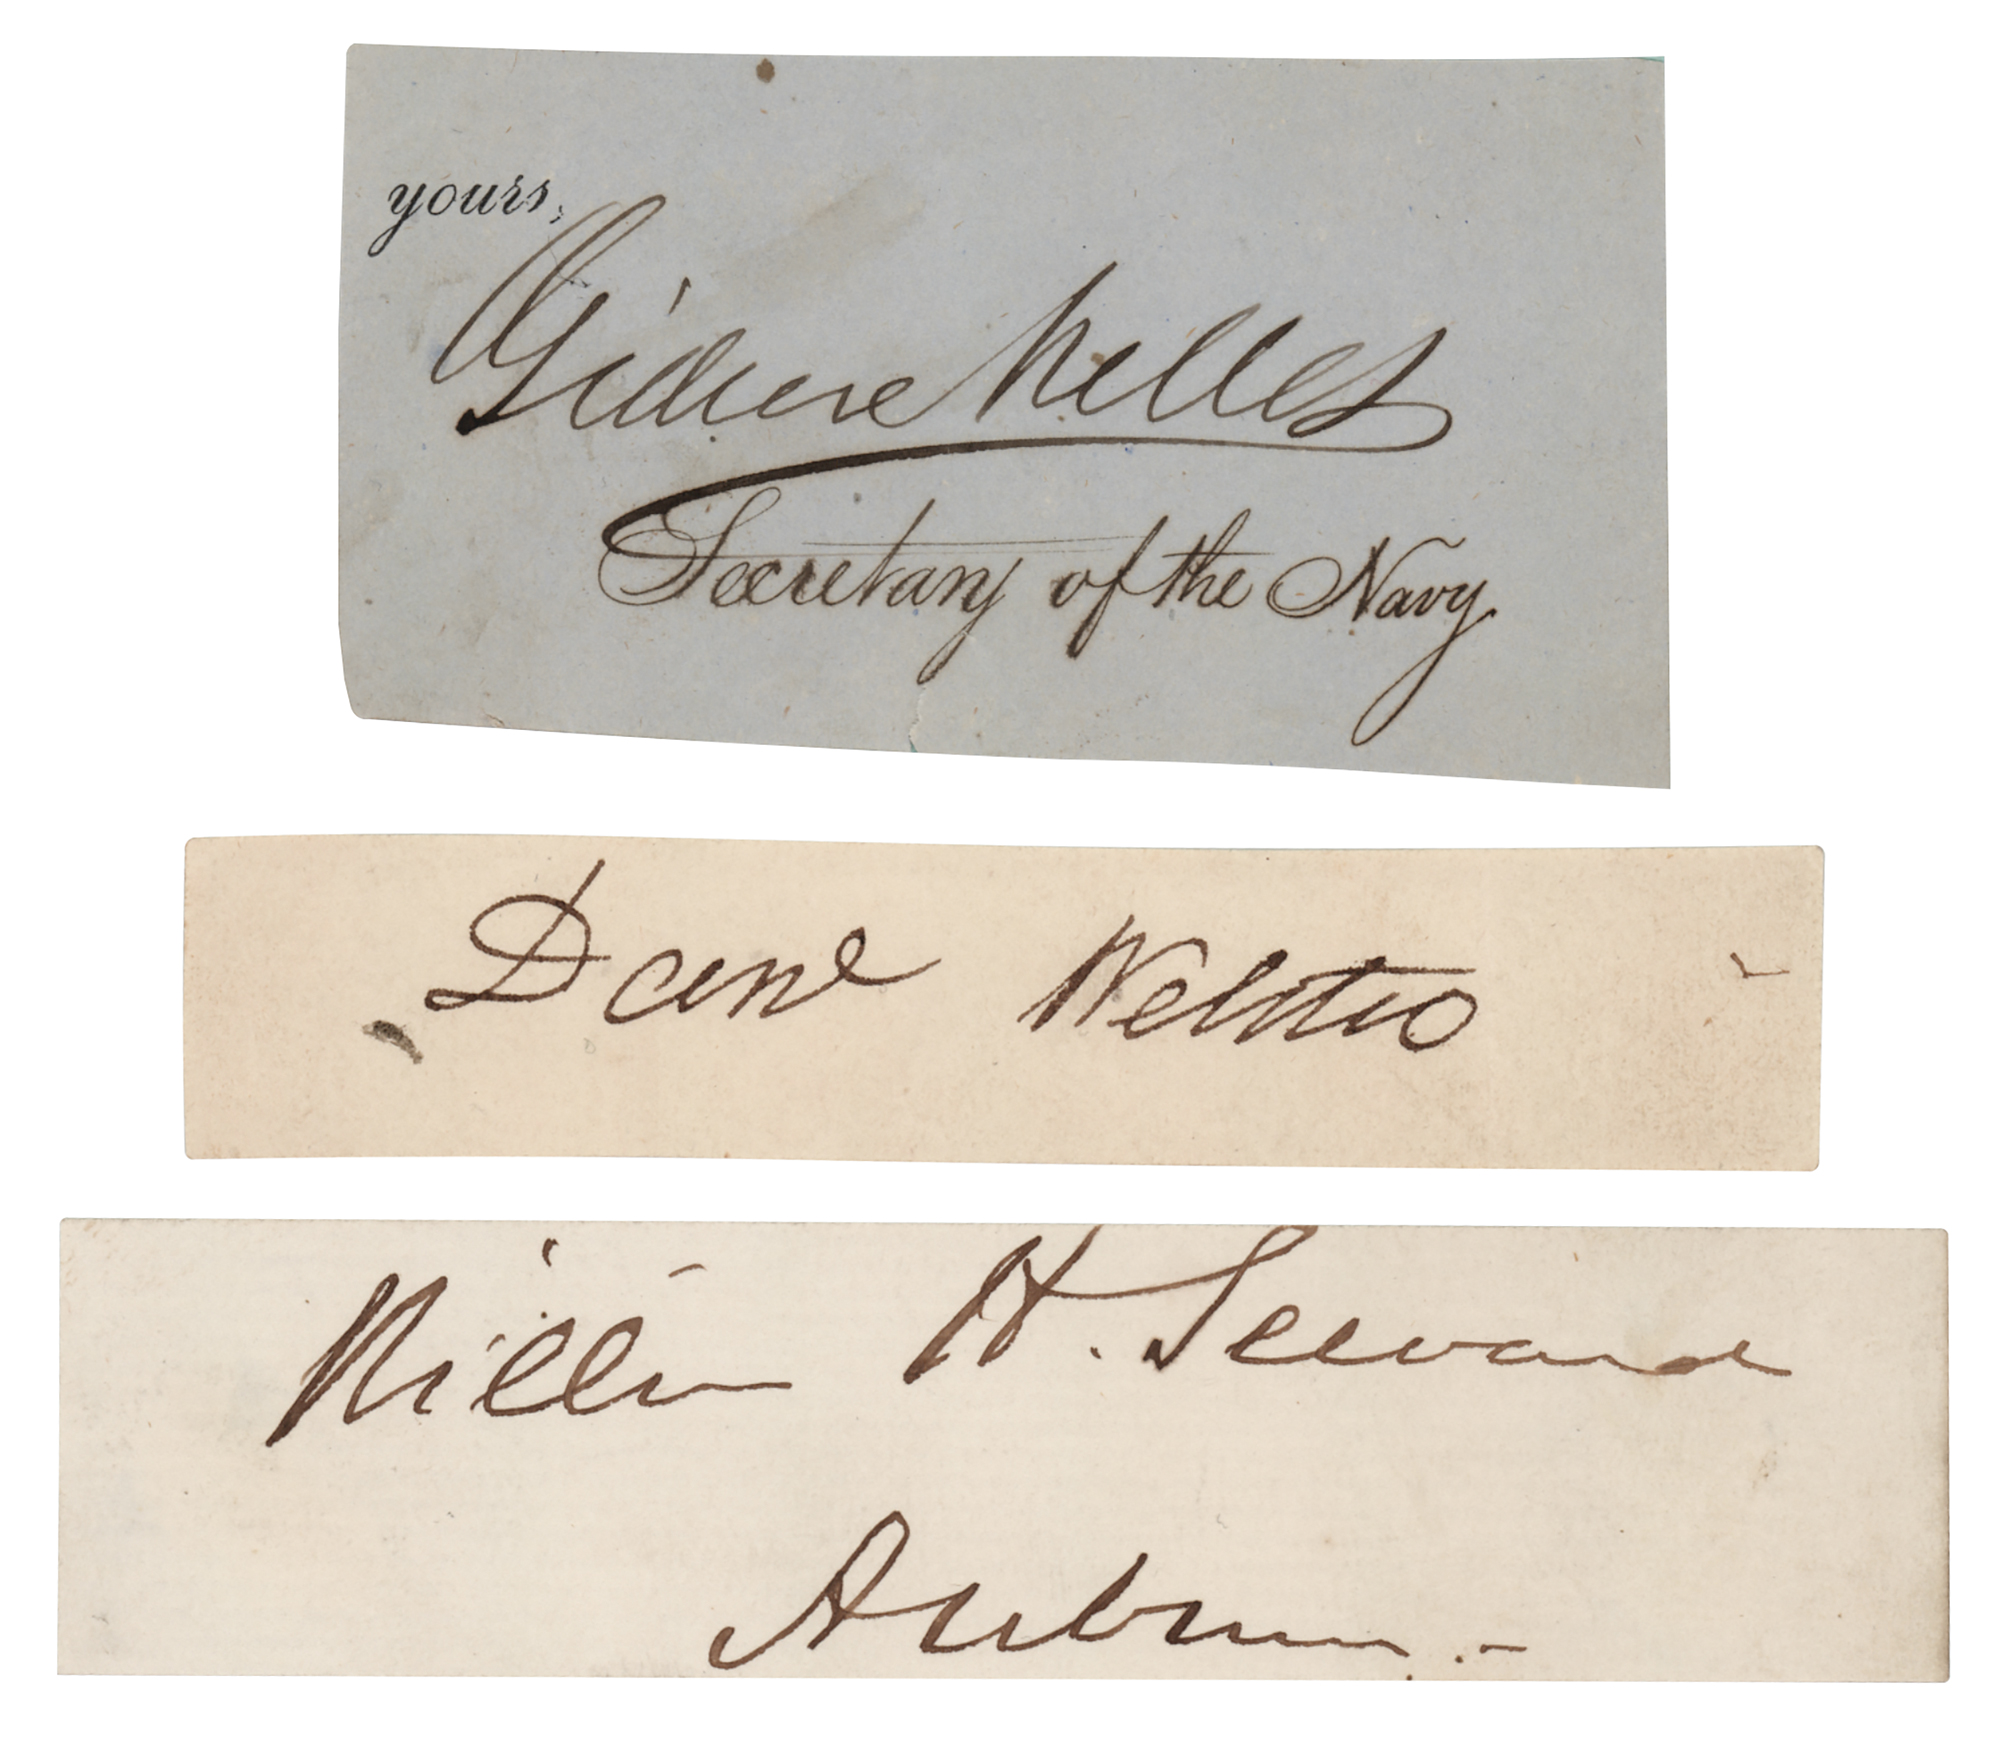 yours,
Gideon Welles
Secretary of the Navy
Danl Webster
William H. Seward
Auburn.